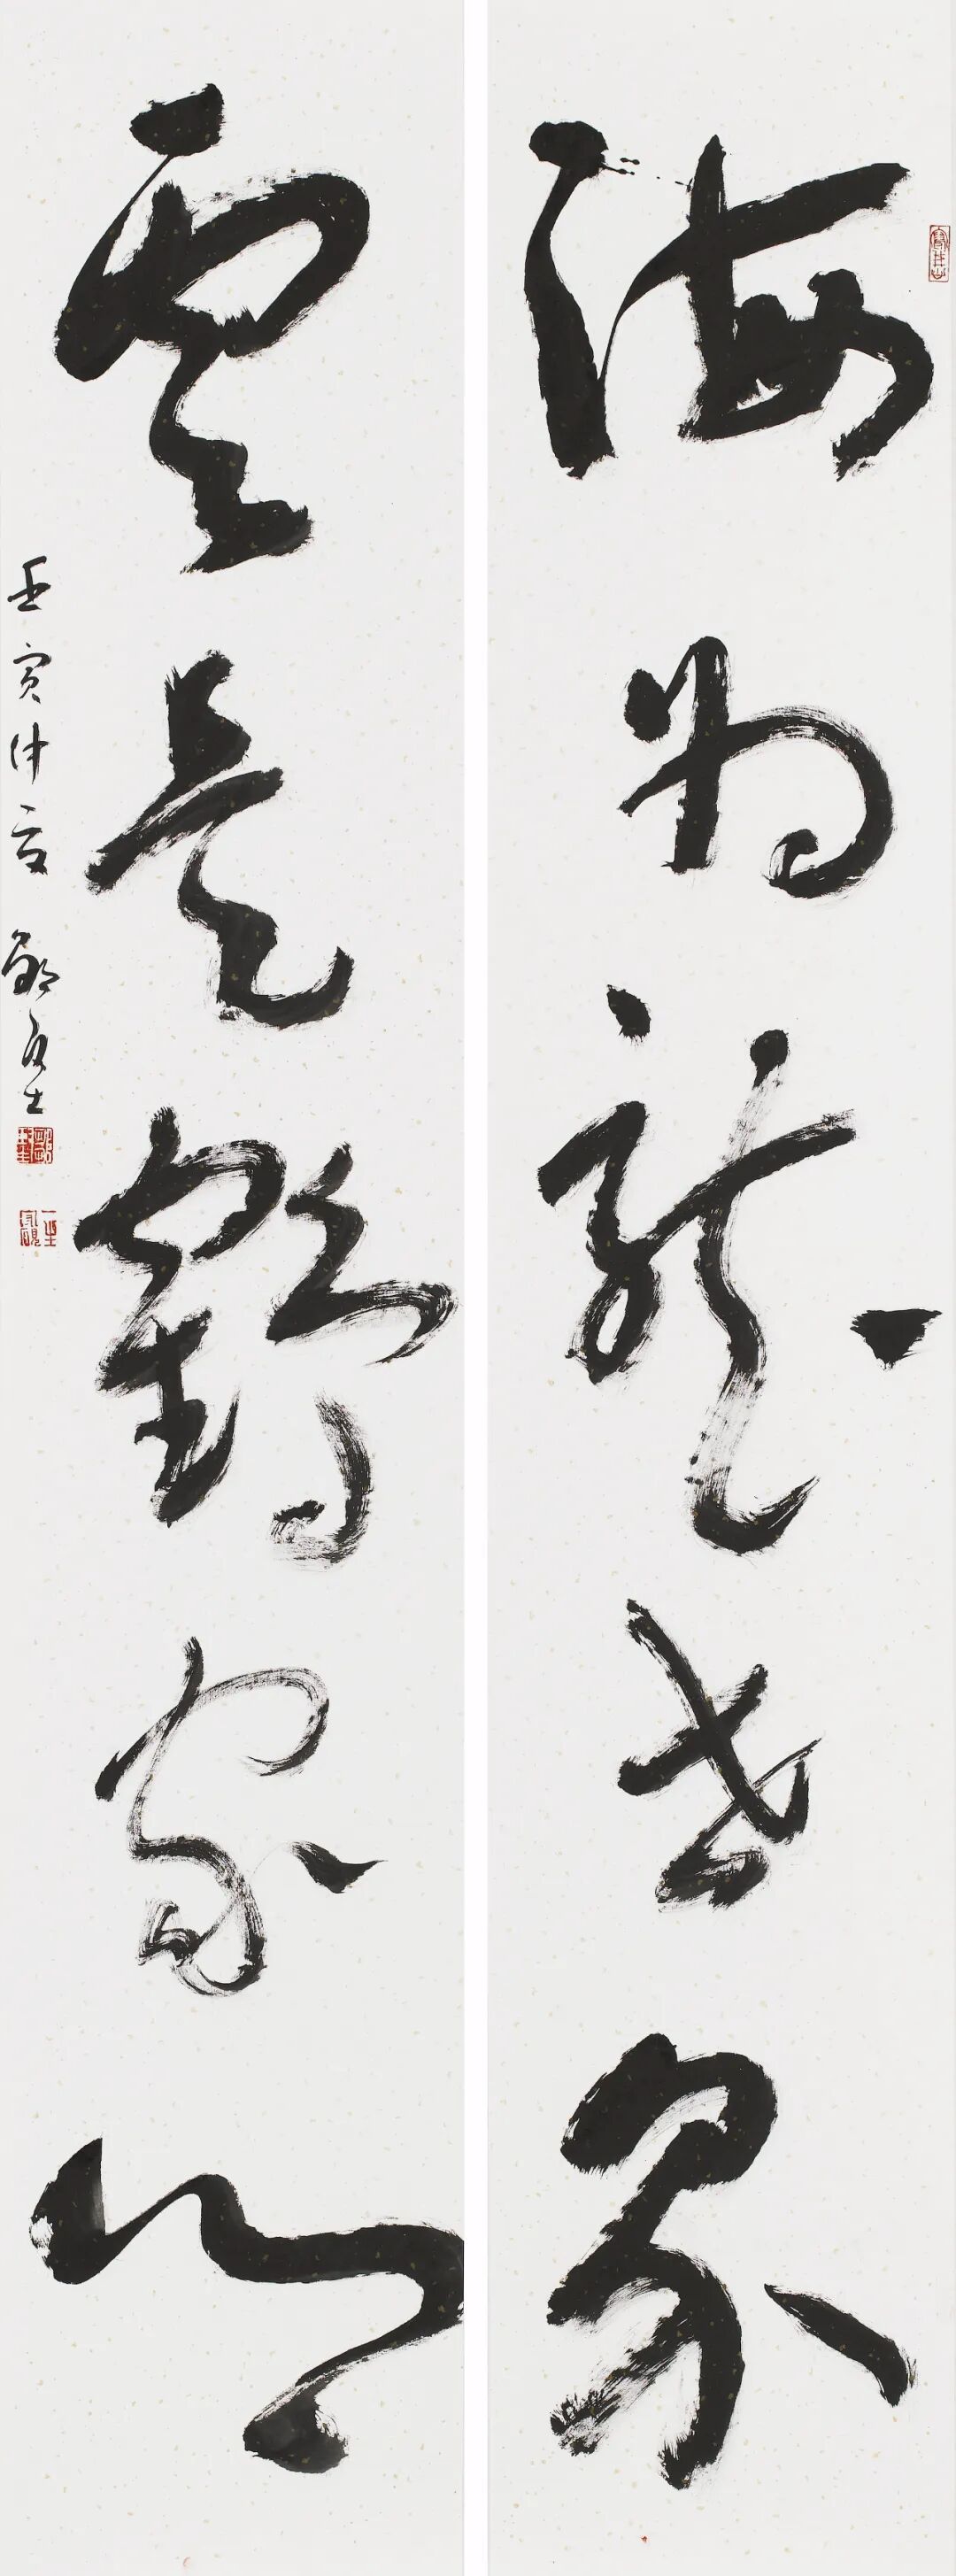 海为龙世界
云是鹤家乡
壬寅仲夏